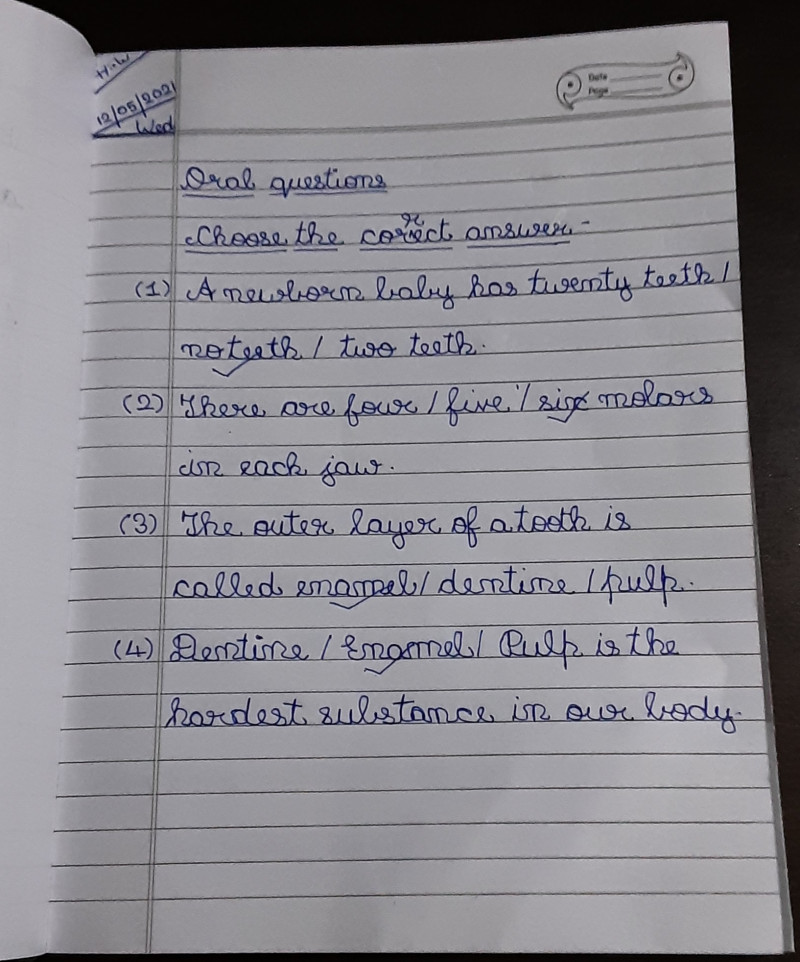 H.W
12/05/2021
Wed
Date
Page
Oral questions
Choose the correct answer-
(1) A newborn baby has twenty teeth /
no teeth / two teeth.
(2) There are four / five / six molars
in each jaw.
(3) The outer layer of a tooth is
called enamel / dentine / pulp.
(4) Dentine / Enamel / Pulp is the
hardest substance in our body.